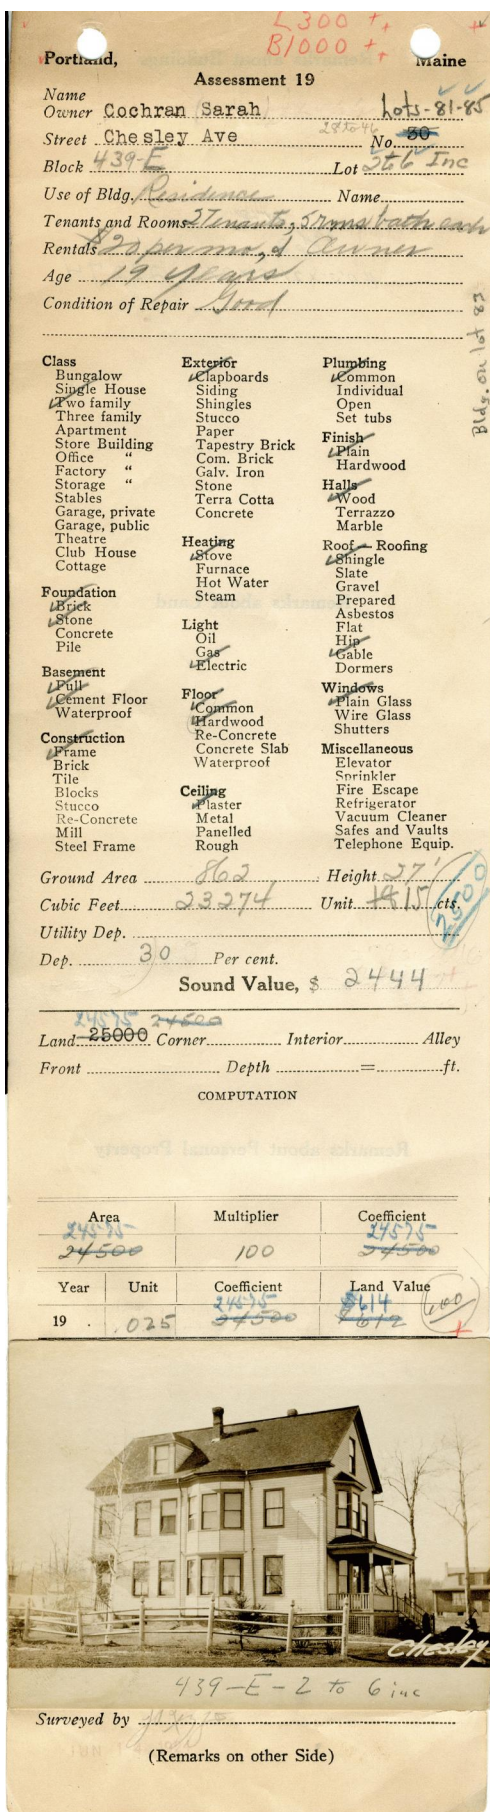 L300 +
B1000 +
Portland, Maine
Assessment 19
Name
Owner Cochran Sarah Lots-81-85
28 to 46
Street Chesley Ave No. 30
Block 439-E Lot 2 to 6 Inc
Use of Bldg. Residence Name
Tenants and Rooms 2 Tenants, 5 rms bath each
Rentals $20 per mo, & Owner
Age 19 years
Condition of Repair Good
Bldg. on lot 83
Class
Bungalow
Single House
Two family
Three family
Apartment
Store Building
Office "
Factory "
Storage "
Stables
Garage, private
Garage, public
Theatre
Club House
Cottage
Foundation
Brick
Stone
Concrete
Pile
Basement
Full
Cement Floor
Waterproof
Construction
Frame
Brick
Tile
Blocks
Stucco
Re-Concrete
Mill
Steel Frame
Exterior
Clapboards
Siding
Shingles
Stucco
Paper
Tapestry Brick
Com. Brick
Galv. Iron
Stone
Terra Cotta
Concrete
Heating
Stove
Furnace
Hot Water
Steam
Light
Oil
Gas
Electric
Floor
Common
Hardwood
Re-Concrete
Concrete Slab
Waterproof
Ceiling
Plaster
Metal
Panelled
Rough
Plumbing
Common
Individual
Open
Set tubs
Finish
Plain
Hardwood
Halls
Wood
Terrazzo
Marble
Roof — Roofing
Shingle
Slate
Gravel
Prepared
Asbestos
Flat
Hip
Gable
Dormers
Windows
Plain Glass
Wire Glass
Shutters
Miscellaneous
Elevator
Sprinkler
Fire Escape
Refrigerator
Vacuum Cleaner
Safes and Vaults
Telephone Equip.
Ground Area 862 Height 27'
Cubic Feet 23274 Unit 15 cts.
2500
Utility Dep.
Dep. 30 Per cent.
Sound Value, $ 2444
24575 24500
Land 25000 Corner Interior Alley
Front Depth = ft.
COMPUTATION
Area Multiplier Coefficient
24575 24575
24500 100 24500
Year Unit Coefficient Land Value
24575 $614 600
19 . .025 24500 $612
Chesley
439-E-2 to 6 inc
Surveyed by
(Remarks on other Side)